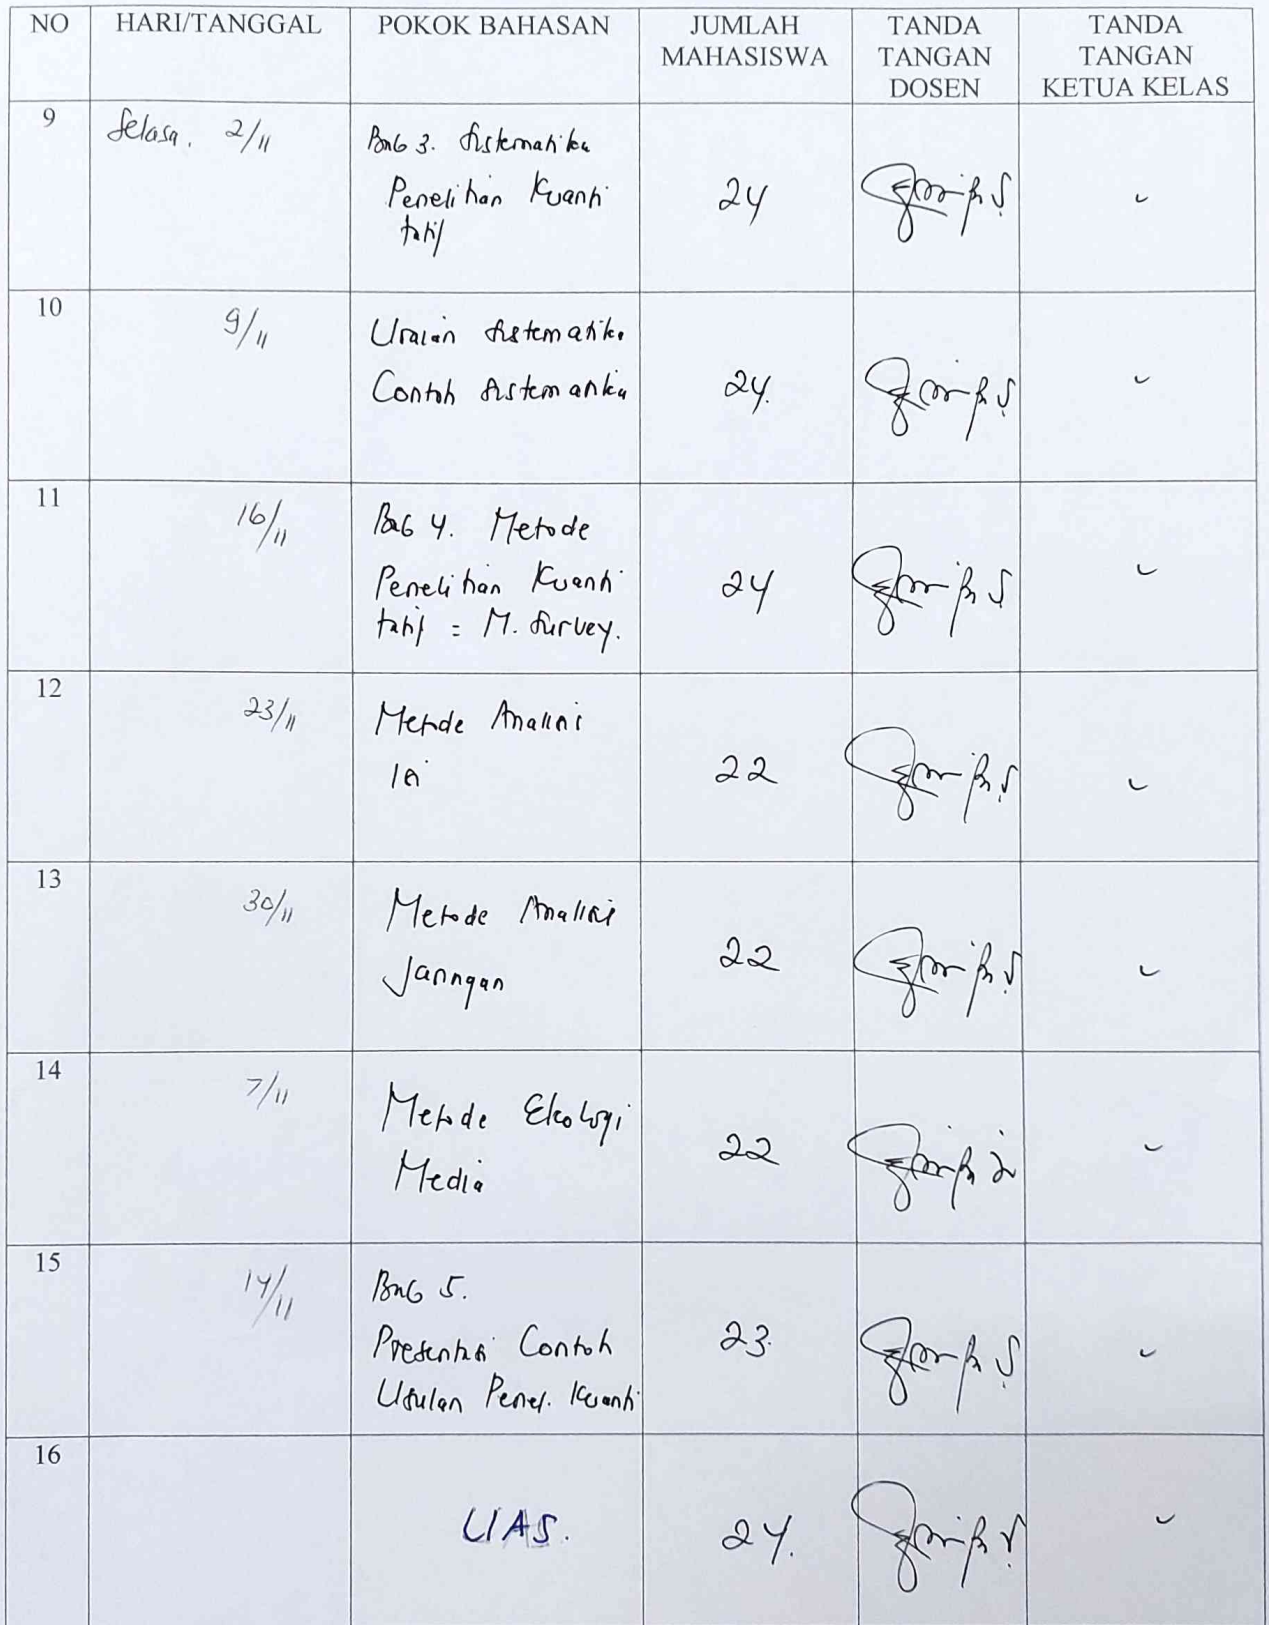 NO HARI/TANGGAL POKOK BAHASAN JUMLAH MAHASISWA TANDA TANGAN DOSEN TANDA TANGAN KETUA KELAS
9 Selasa, 2/11 Bab 3. Sistematika 24
Penelitian Kuanti
tatif
10 9/11 Uraian Sistematika 24.
Contoh Sistematika
11 16/11 Bab 4. Metode 24
Penelitian Kuanti
tatif = M. Survey.
12 23/11 Metode Analisis 22
Isi
13 30/11 Metode Analisis 22
Jaringan
14 7/11 Metode Ekologi 22
Media
15 14/11 Bab 5. 23.
Presentasi Contoh
Usulan Penel. Kuanti
16 UAS. 24.